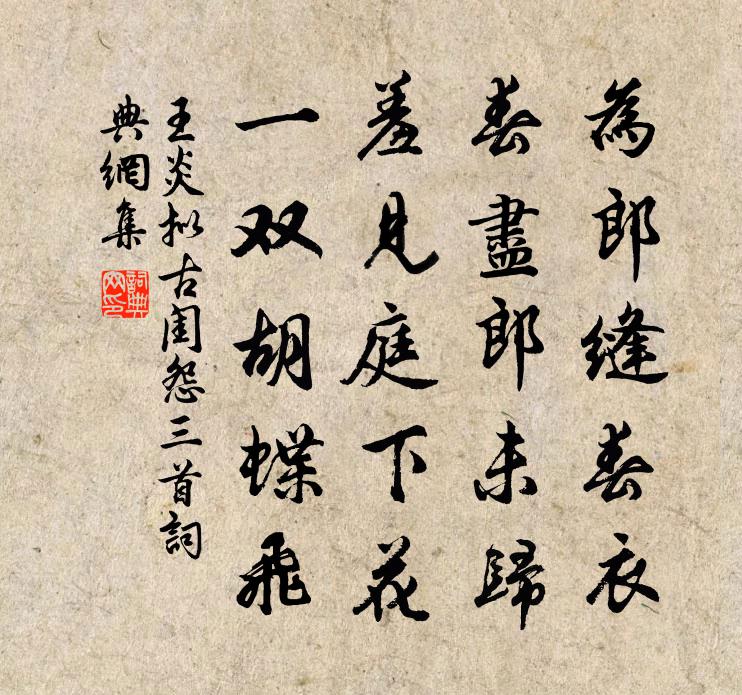 為郎縫春衣
春盡郎未歸
羞見庭下花
一双胡蝶飛
王炎拟古閨怨三首詞
典網集
詞典网印